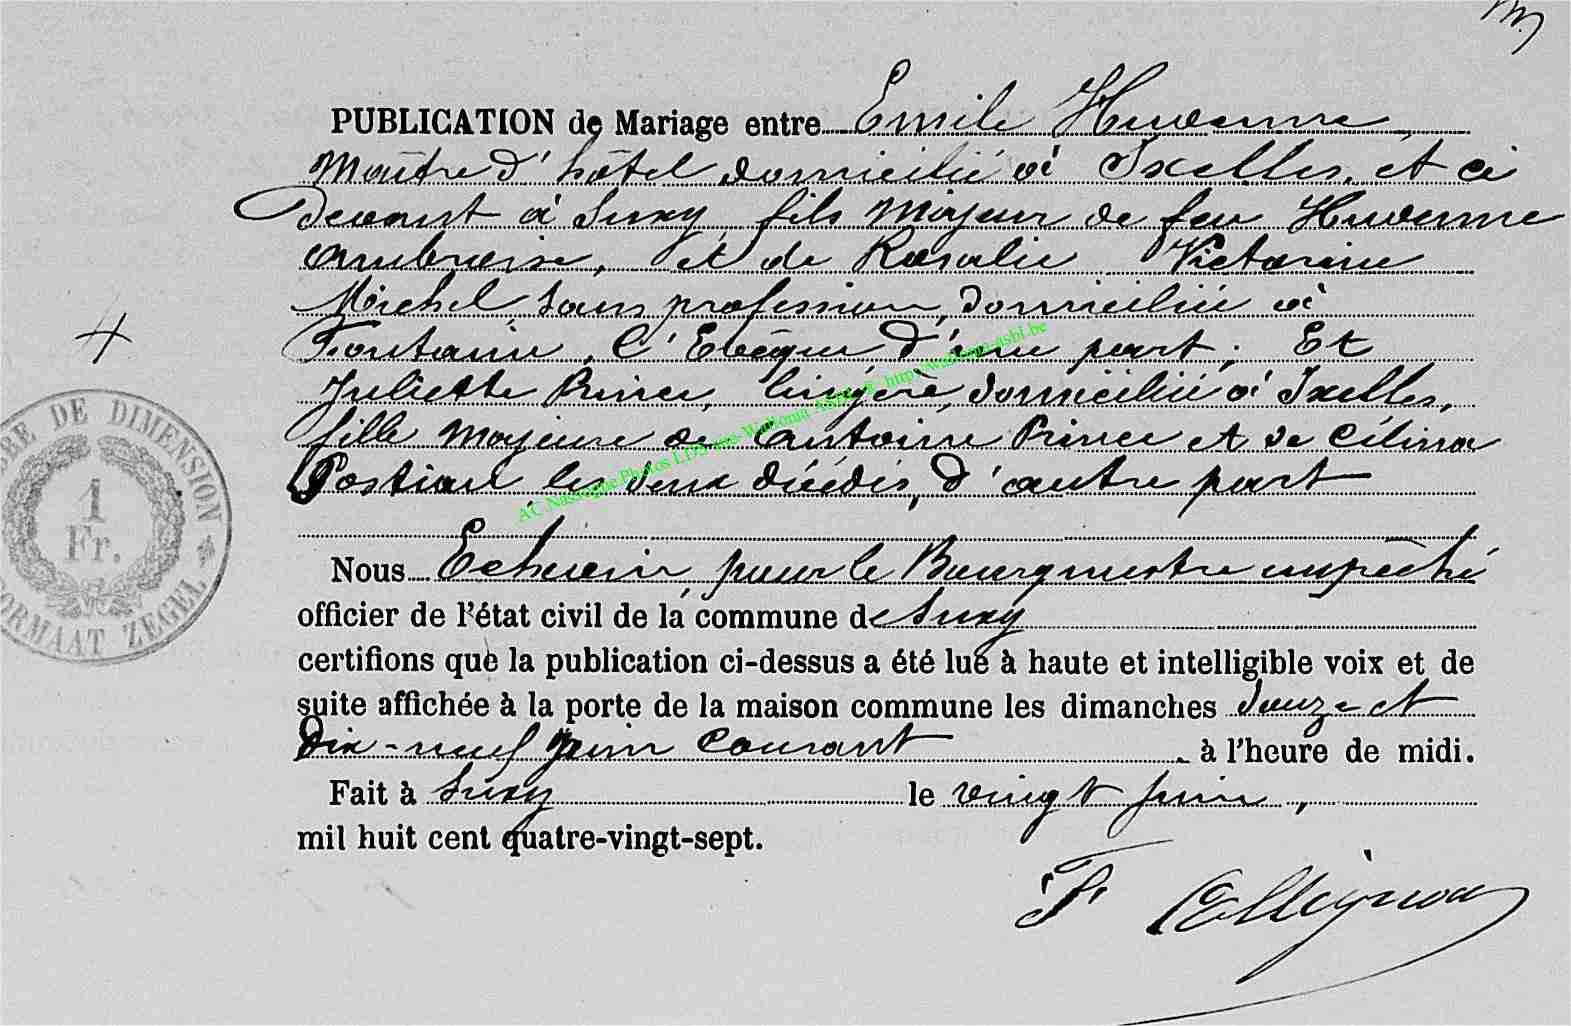 PUBLICATION de Mariage entre Emile Huvenne,
Maître d'hôtel domicilié à Ixelles, et ci
devant à Suxy, fils Majeur de feu Huvenne
Ambroise, et de Rosalie Victorine
Michel, sans profession, domiciliée à
Fontaine, l'Evêque d'une part; Et
Juliette Prince, lingère, domiciliée à Ixelles,
fille Majeure de Antoine Prince et de Célina
les deux décédés, d'autre part
Nous Echevin pour le Bourgmestre empêché
officier de l'état civil de la commune de Suxy
certifions que la publication ci-dessus a été lue à haute et intelligible voix et de
suite affichée à la porte de la maison commune les dimanches douze et
Dix-neuf juin Courant à l'heure de midi.
Fait à Suxy le vingt juin,
mil huit cent quatre-vingt-sept.
F Collignon
DE DIMENSION
1
Fr.
FORMAAT ZEGEL